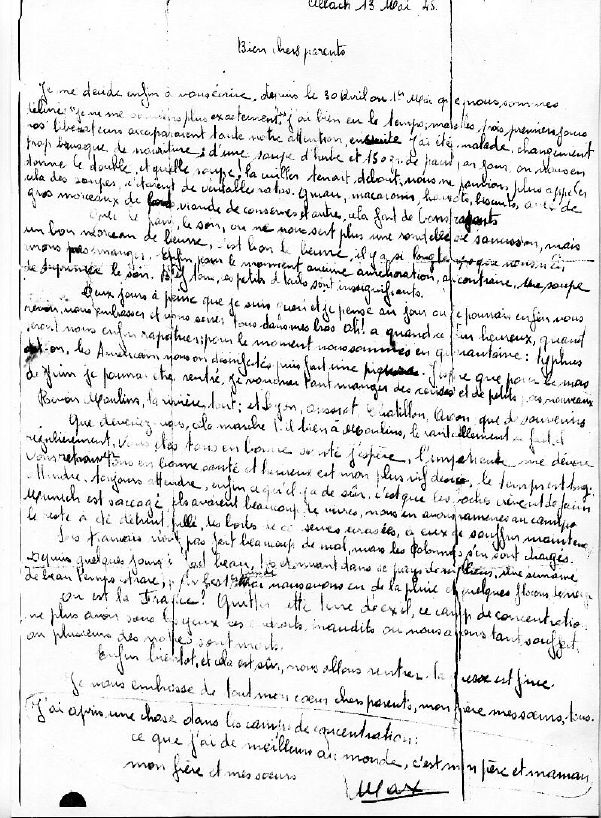 Allach 13 Mai 45.
Bien chers parents
Je me décide enfin à vous écrire, depuis le 30 Avril ou 1er Mai que nous sommes
délivrés je ne me souviens plus exactement, j'ai bien eu le temps, mais les trois premiers jours
nos libérateurs accaparaient toute notre attention, ensuite j'ai été malade, changement
trop brusque de nourriture : d'une soupe d'herbe et 150 gr de pain, par jour, on nous en
donne le double, et quelle soupe, la cuiller tenait debout, nous ne pouvions plus appeler
cela des soupes, c'étaient de véritables ratas. Gruau, macaronis, haricots, biscuits, avec de
gros morceaux de viande de conserves et autre, à la font de
Avec le pain, le soir, on ne nous sert plus une rondelle de saucisson, mais
un bon morceau de beurre, c'est bon le beurre, il y a si longtemps que nous n'en
avons pas mangé. Enfin pour le moment aucune amélioration, au contraire, une soupe
de supprimée le soir. petits détails sont insignifiants.
Deux jours à peine que je suis guéri et je pense au jour où je pourrais enfin vous
revoir, vous embrasser et vous serrer tous dans mes bras. Oh ! à quand ce jour heureux, quand
serons nous enfin rapatriés; pour le moment nous sommes en quarantaine : typhus
les Américains nous ont désinfectés puis fait une piqure. J'espère que pour le mois
de Juin je pourrai être rentré, je voudrais tant manger des cerises et de petits pois nouveaux
Revoir Moulins, la rivière, tout; et Lyon, Châtillon, que de souvenirs
Que devenez-vous, cela marche t'il bien à Moulins, le ravitaillement se fait-il
régulièrement, vous êtes tous en bonne santé j'espère, l'important me dévore
Vous retrouver tous en bonne santé et heureux est mon plus vif désir, le temps est long.
Attendre, toujours attendre, enfin ce qu'il y a de sûr, c'est que les boches crèvent de faim
Munich est saccagé, ils avaient beaucoup de vivres, nous en avons ramenés au camp
le reste a été détruit, pillé, les boites de conserves écrasées, à eux de souffrir maintenant
Les Français n'ont pas fait beaucoup de mal, mais les Polonais s'en sont chargés.
Depuis quelques jours il fait beau, étonnant dans ce pays de une semaine
de beau temps et rare, 1er Mai nous avons eu de la pluie et quelques flocons de neige
Où est la France ? Quitter cette terre d'exil, ce camp de concentration
ne plus avoir sous les yeux ces endroits maudits où nous avons tant souffert,
où plusieurs des nôtres sont morts.
Enfin bientôt, et cela est sûr, nous allons rentrer. la guerre est finie.
Je vous embrasse de tout mon cœur chers parents, mon frère mes sœurs, tous.
J'ai appris une chose dans les camps de concentration :
ce que j'ai de meilleur au monde, c'est mon père et maman
mon frère et mes sœurs
Max